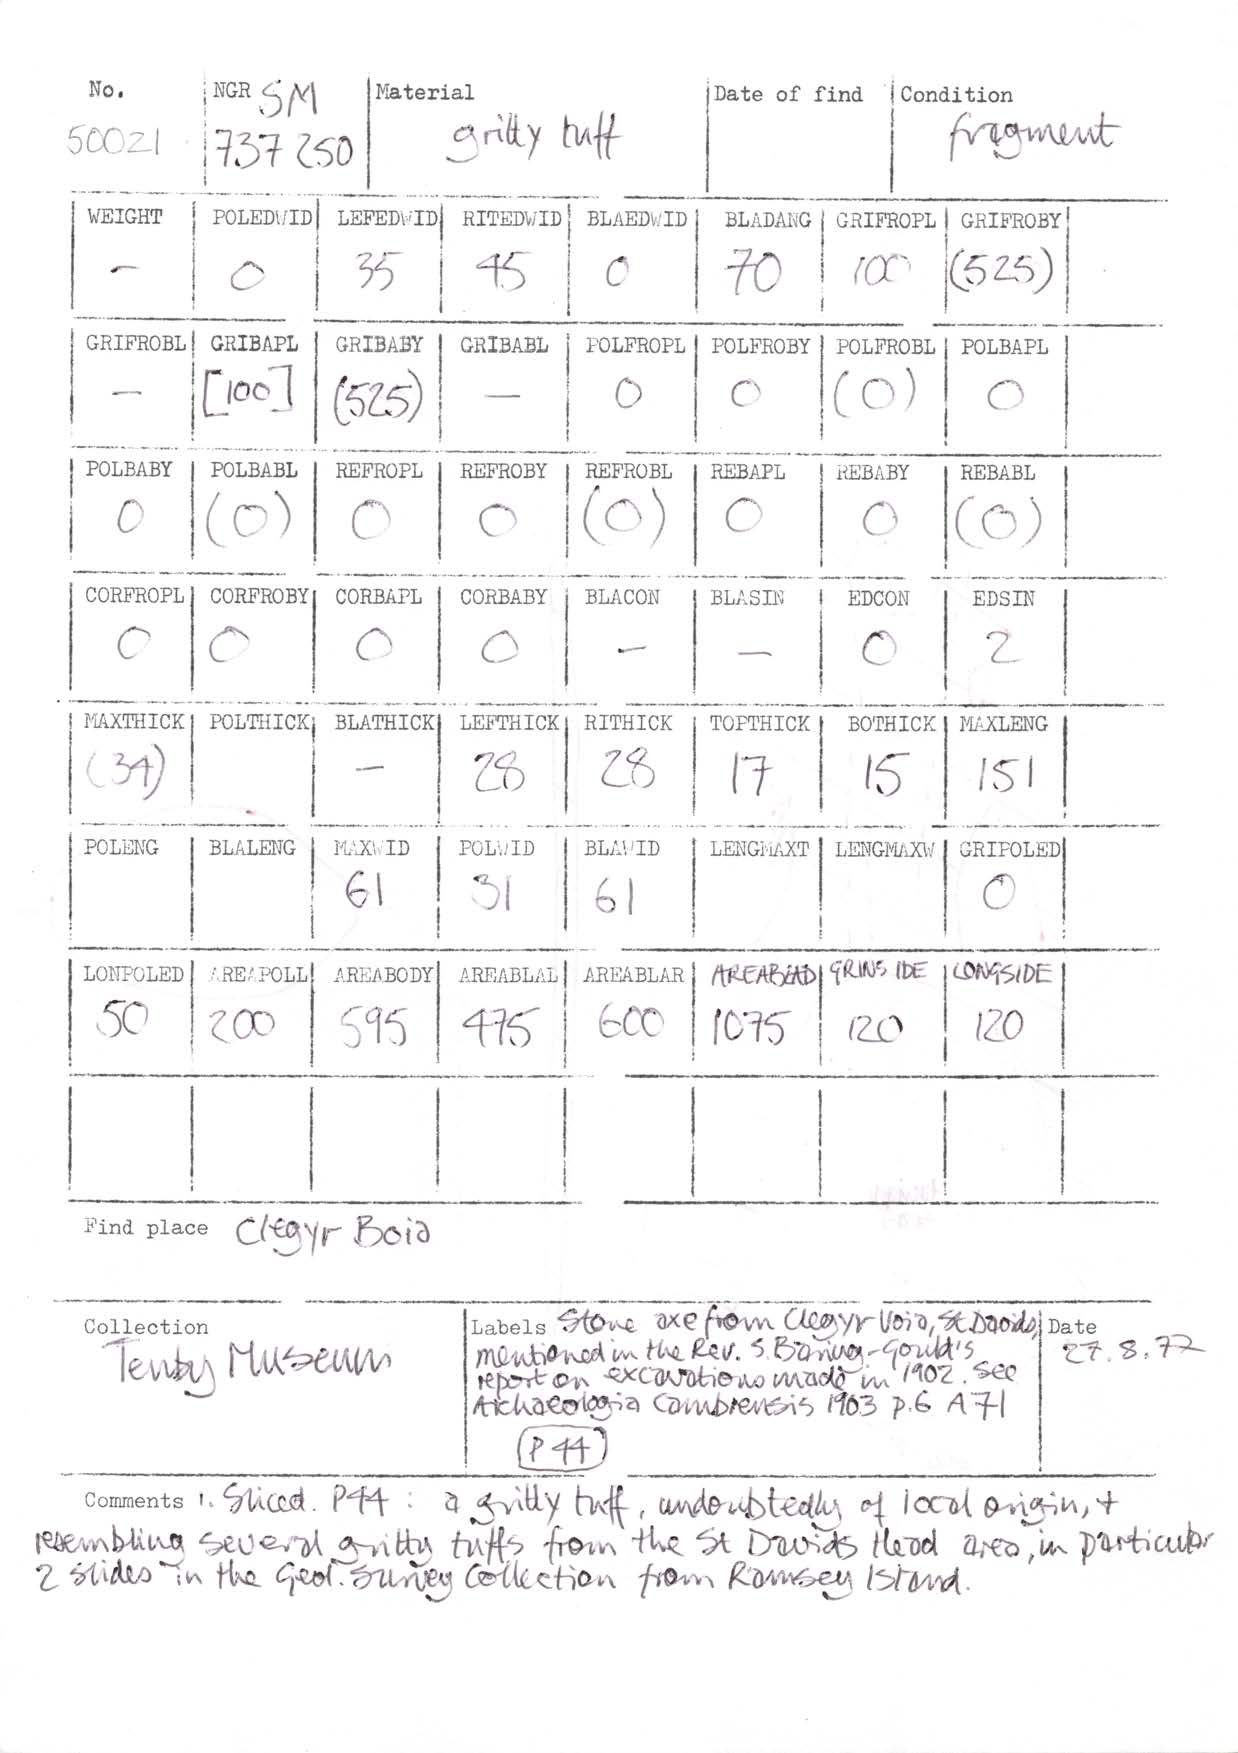 No. NGR SM Material Date of find Condition
50021 737 250 gritty tuff fragment
WEIGHT POLEDWID LEFEDWID RITEDWID BLAEDWID BLADANG GRIFROPL GRIFROBY
- 0 35 45 0 70 100 (525)
GRIFROBL GRIBAPL GRIBABY GRIBABL POLFROPL POLFROBY POLFROBL POLBAPL
- [100] (525) - 0 0 (0) 0
POLBABY POLBABL REFROPL REFROBY REFROBL REBAPL REBABY REBABL
0 (0) 0 0 (0) 0 0 (0)
CORFROPL CORFROBY CORBAPL CORBABY BLACON BLASIN EDCON EDSIN
0 0 0 0 - - 0 2
MAXTHICK POLTHICK BLATHICK LEFTHICK RITHICK TOPTHICK BOTHICK MAXLENG
(34) - 28 28 17 15 151
POLENG BLALENG MAXWID POLWID BLAWID LENGMAXT LENGMAXW GRIPOLED
61 31 61 0
LONPOLED AREAPOLL AREABODY AREABLAL AREABLAR AREABLAD GRINSIDE LONGSIDE
50 200 595 475 600 1075 120 120
Find place Clegyr Boia
Collection
Tenby Museum
Labels Stone axe from Clegyr Voia, St Davids,
mentioned in the Rev. S. Baring-Gould's
report on excavations made in 1902. see
Archaeologia Cambrensis 1903 p.6 A71
P44
Date
27.8.77
Comments 1. Sliced. P44 : a gritty tuff, undoubtedly of local origin, +
resembling several gritty tuffs from the St Davids Head area, in particular
2 slides in the Geol. Survey Collection from Ramsey Island.